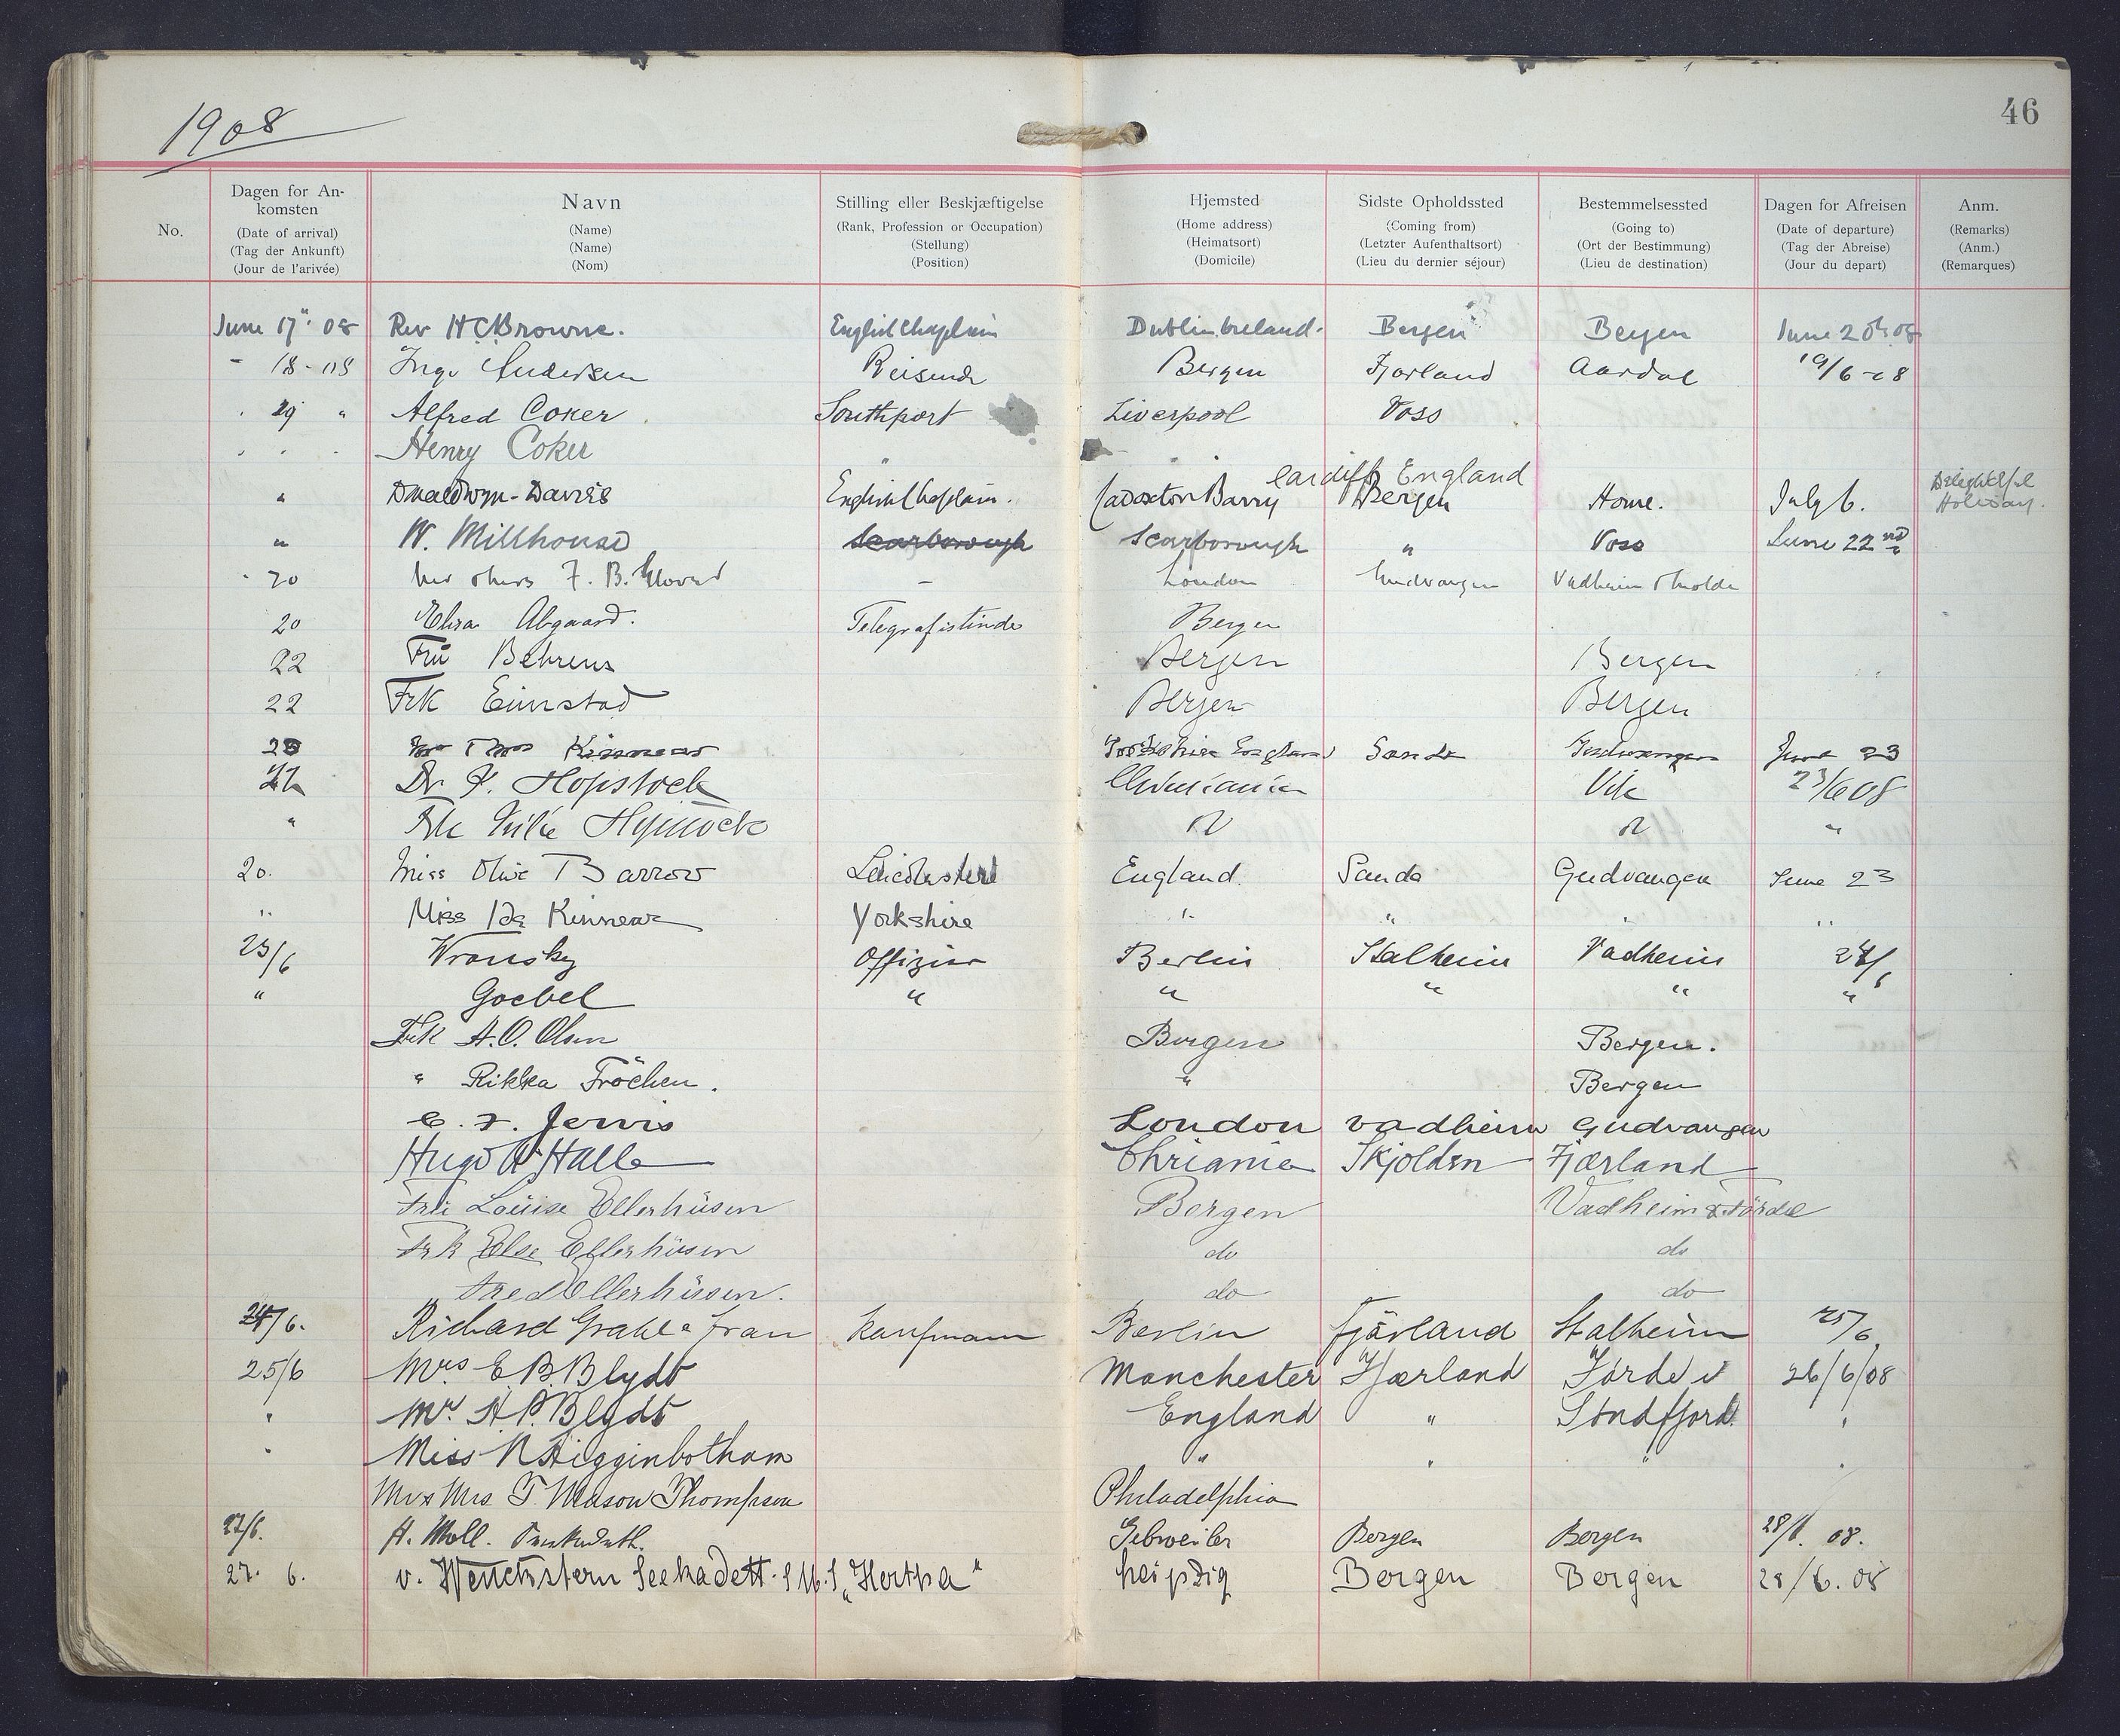 1908
46
No.
Dagen for An-
komsten
(Date of arrival)
(Tag der Ankunft)
(Jour de l'arivée)
Navn
(Name)
(Name)
(Nom)
Stilling eller Beskjæftigelse
(Rank, Profession or Occupation)
(Stellung)
(Position)
Hjemsted
(Home address)
(Heimatsort)
(Domicile)
Sidste Opholdssted
(Coming from)
(Letzter Aufenthaltsort)
(Lieu du dernier séjour)
Bestemmelsessted
(Going to)
(Ort der Bestimmung)
(Lieu de destination)
Dagen for Afreisen
(Date of departure)
(Tag der Abreise)
(Jour du depart)
Anm.
(Remarks)
(Anm.)
(Remarques)
June 17" 08 Rev H C Browne. English Chaplain Dublin Ireland. Bergen Bergen June 20th 08
" 18-08 Andersen Reisende Bergen Fjærland Aardal 19/6-08
" Alfred Coker Southport Liverpool Voss
Henry Coker "
Cardiff, England
" Davies English Chaplain. Cadoxton Barry Bergen Home. July 6. Delightful
Holiday.
" W. Millhouse Scarborough Scarborough " Voss June 22nd
20 F. B. London Gudvangen Vadheim Molde
20 Abgaard. Telegrafistinde Bergen
22 Frü Behrens Bergen Bergen
22 Frk Bergen Bergen
Kinnear Yorkshire England Sande Gudvangen June 23
Dr Hopstock Christiania Vik 23/6 08
" Hopstock "
20. Miss Olive Barrow England. Sande Gudvangen June 23
" Miss Ida Kinnear Yorkshire " " " "
23/6 Wronsky Offizier Berlin Stalheim Vadheim 24/6
" Goebel " " " " "
Frk A. O. Olsen Bergen Bergen.
" Rikka Fröchen. " Bergen
Jervis London Vadheim Gudvangen
Hugo A Halle Chriania Skjolden Fjærland
Frü Loüise Ellerhüsen Bergen Vadheim & Förde
Frk Else Ellerhüsen do do
Fred Ellerhüsen. do do
24/6. Richard Frau Kaufmann Berlin Fjärland Stalheim 25/6
25/6 Mrs E B. Blydt Manchester Fjærland Førde i 26/6/08
" Mr. A. P. Blydt England " Søndfjord "
" Miss N Higginbotham " " " "
Mr & Mrs T. Mason Thompson Philadelphia
27/6. H. Moll. Gebweiler Bergen Bergen 28/6. 08.
27. 6. v. Wenckstern Seekadett. S.M.S „Hertha" Leipzig Bergen Bergen 28/6. 08